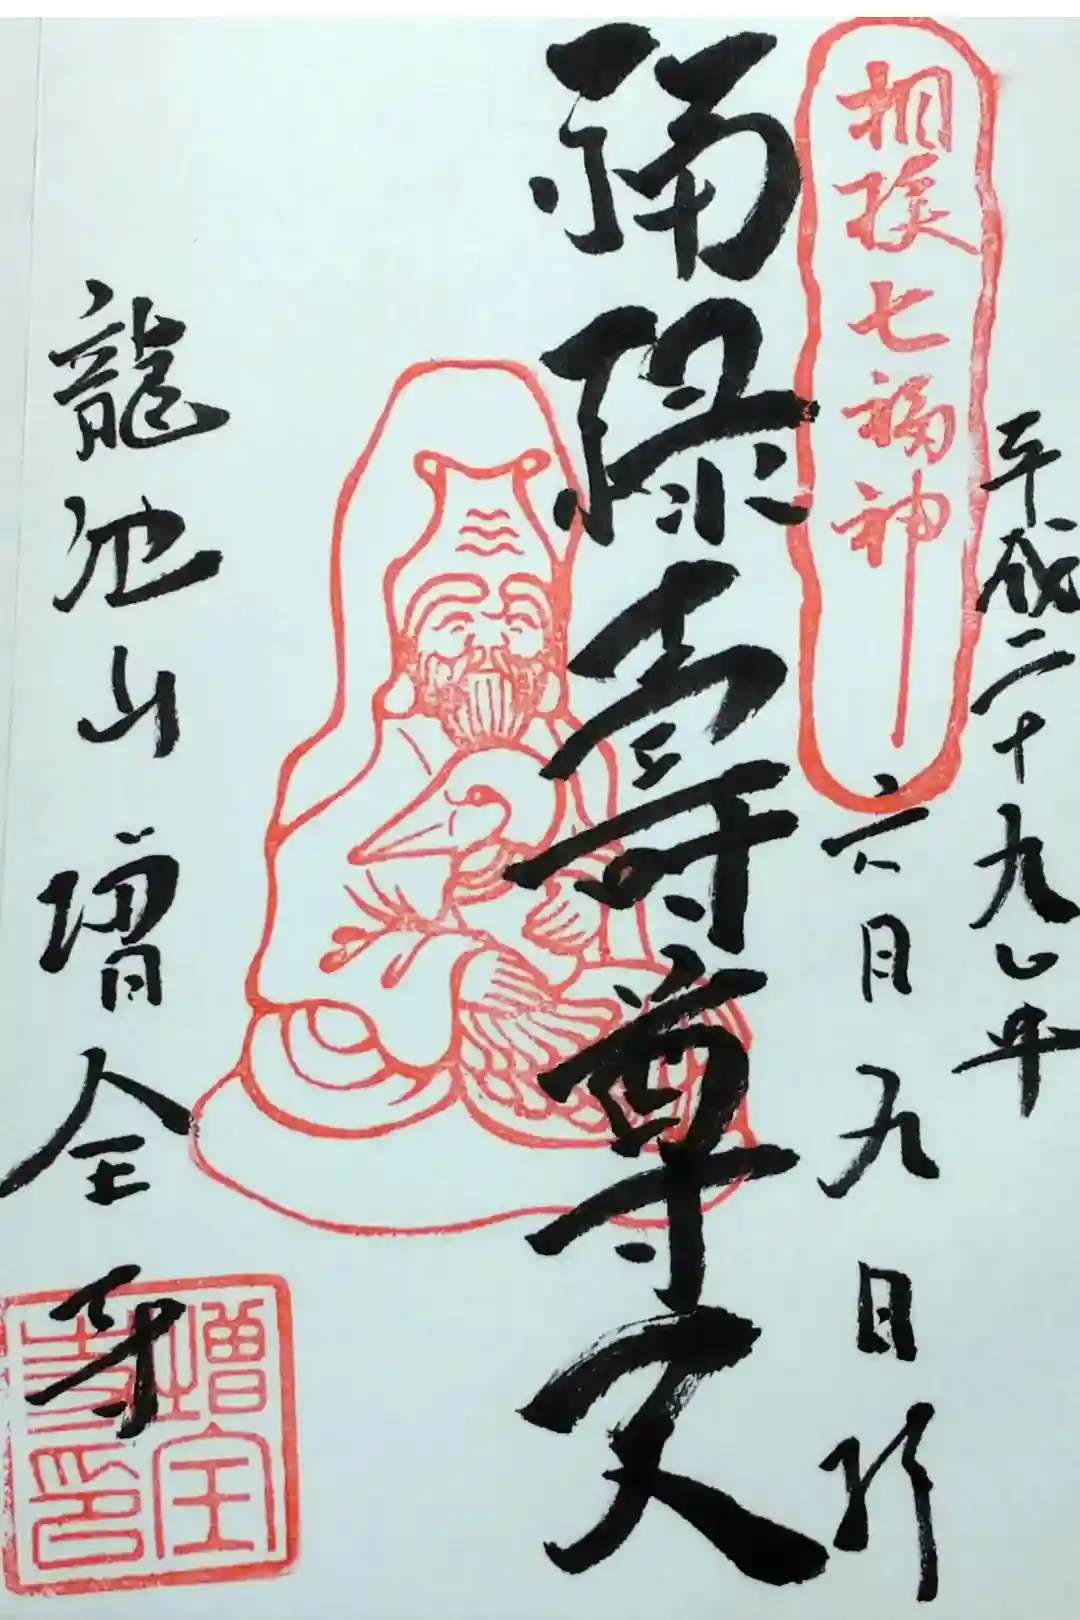 平成二十九年
六月九日
相模七福神
福禄壽尊天
龍池山 増全寺
増全寺印